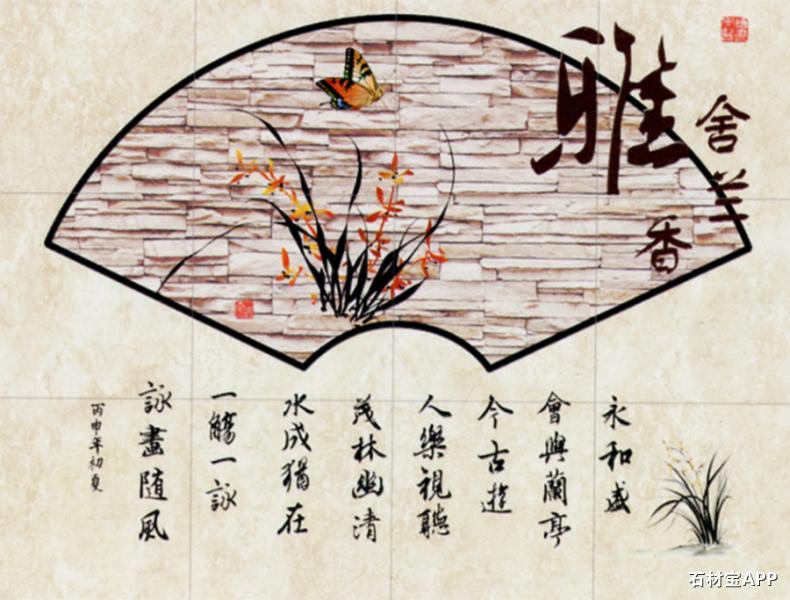 雅
舍兰香
永和盛
會與蘭亭
今古遊
人樂視聽
茂林幽清
水成猶在
一觴一詠
詠畫随風
丙申年初夏
石材宝APP